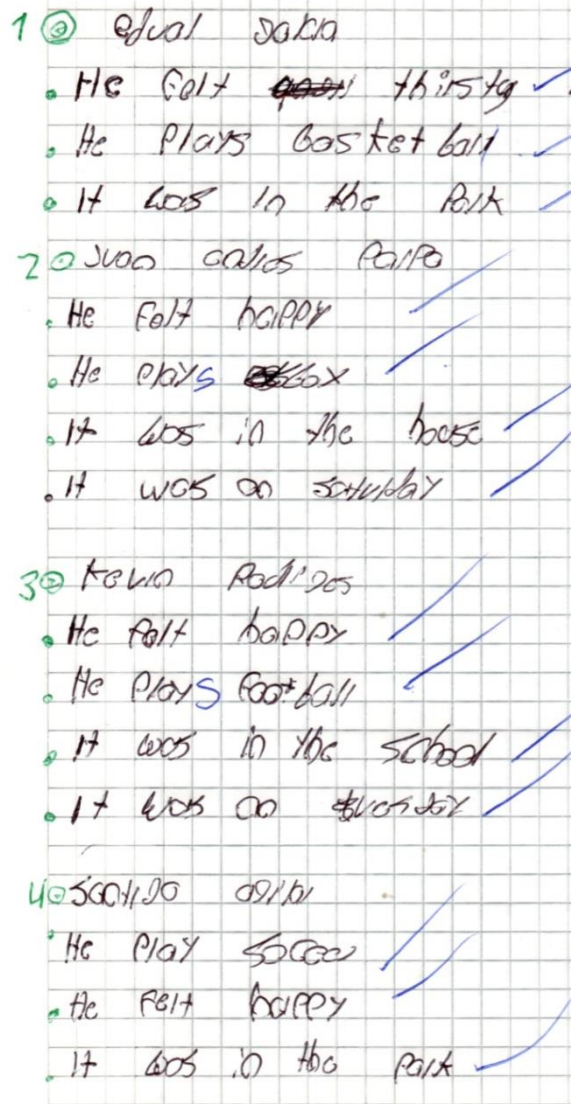 1
• He felt thirsty
• He Plays basket ball
• It was in the Park
2 Juan carlos
• He Felt happy
• He plays box
• It was in the house
• It was on saturday
3 Kevin
• He felt happy
• He Plays Foot ball
• It was in the School
• It was on tuesday
4
• He Play soccer
• He Felt happy
• It was in the Park